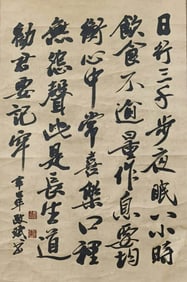 日行三千步夜眠八小時
飲食不逾量作息要均
衡心中常喜樂口裡
無怨聲此是長生道
勸君要記牢